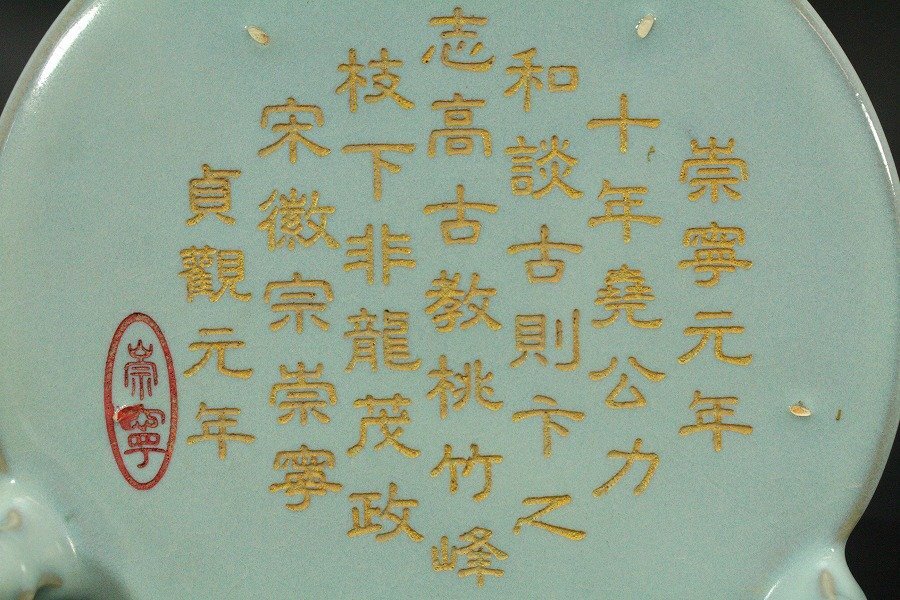 崇寧元年
十年堯公力
和談古則卞之
志高古教桃竹峰
枝下非龍茂政
宋徽宗崇寧
貞觀元年
崇寧